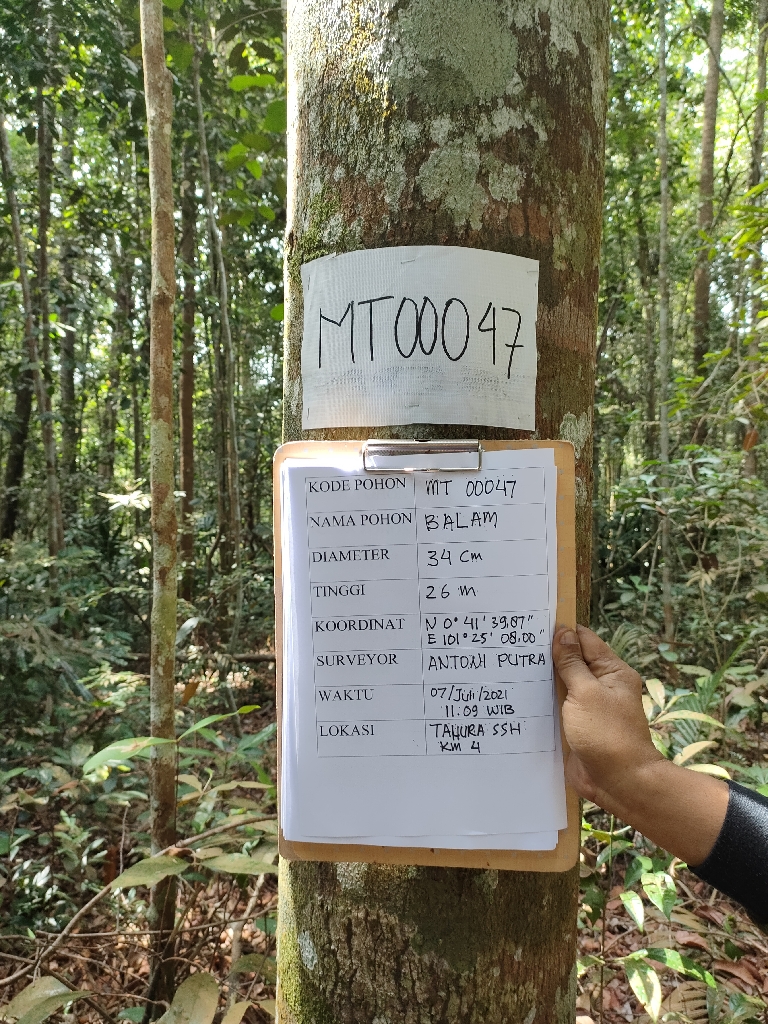 MT00047
KODE POHON MT 00047
NAMA POHON BALAM
DIAMETER 34 Cm
TINGGI 26 m
KOORDINAT N 0° 41' 39,87"
E 101° 25' 08,00"
SURVEYOR ANTONI PUTRA
WAKTU 07/Juli/2021
11:09 WIB
LOKASI TAHURA SSH
KM 4